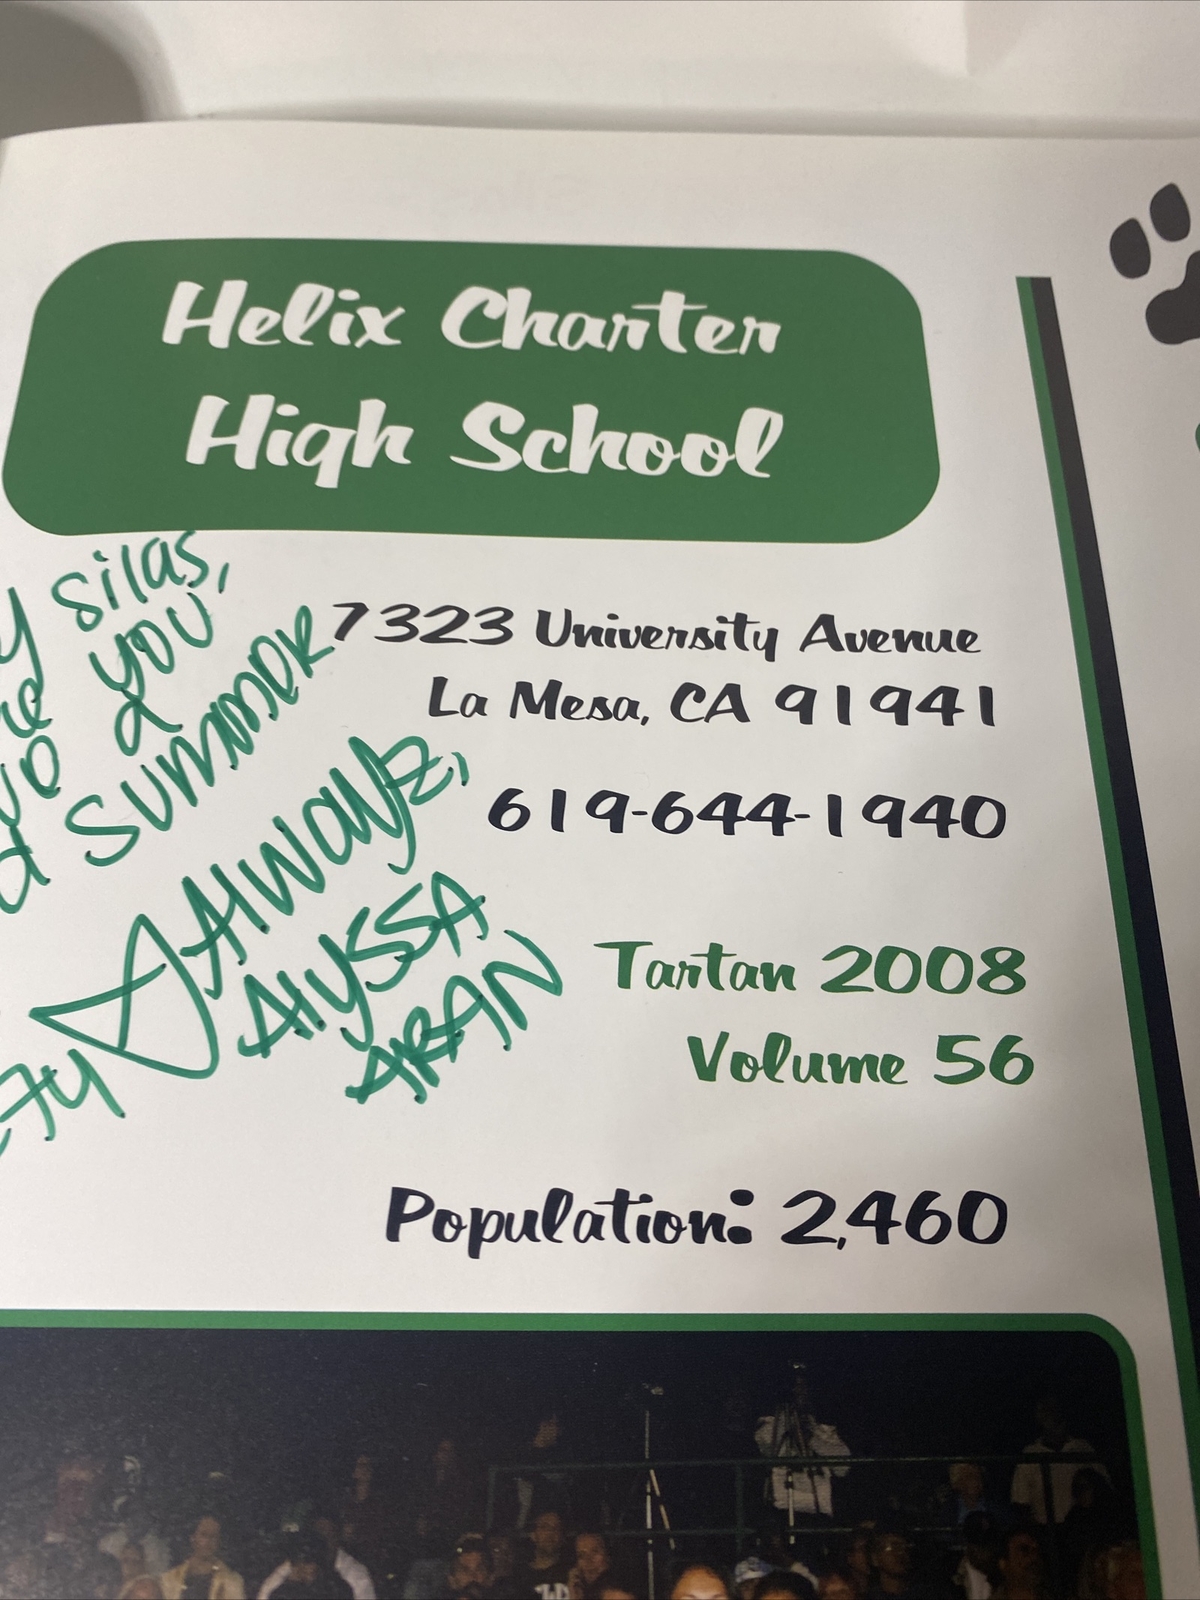 Helix Charter
High School
7323 University Avenue
La Mesa, CA 91941
619-644-1940
Tartan 2008
Volume 56
Population: 2,460
Silas,
you
&
SUMMER
AlWAYz,
AlYSSA
ARAN